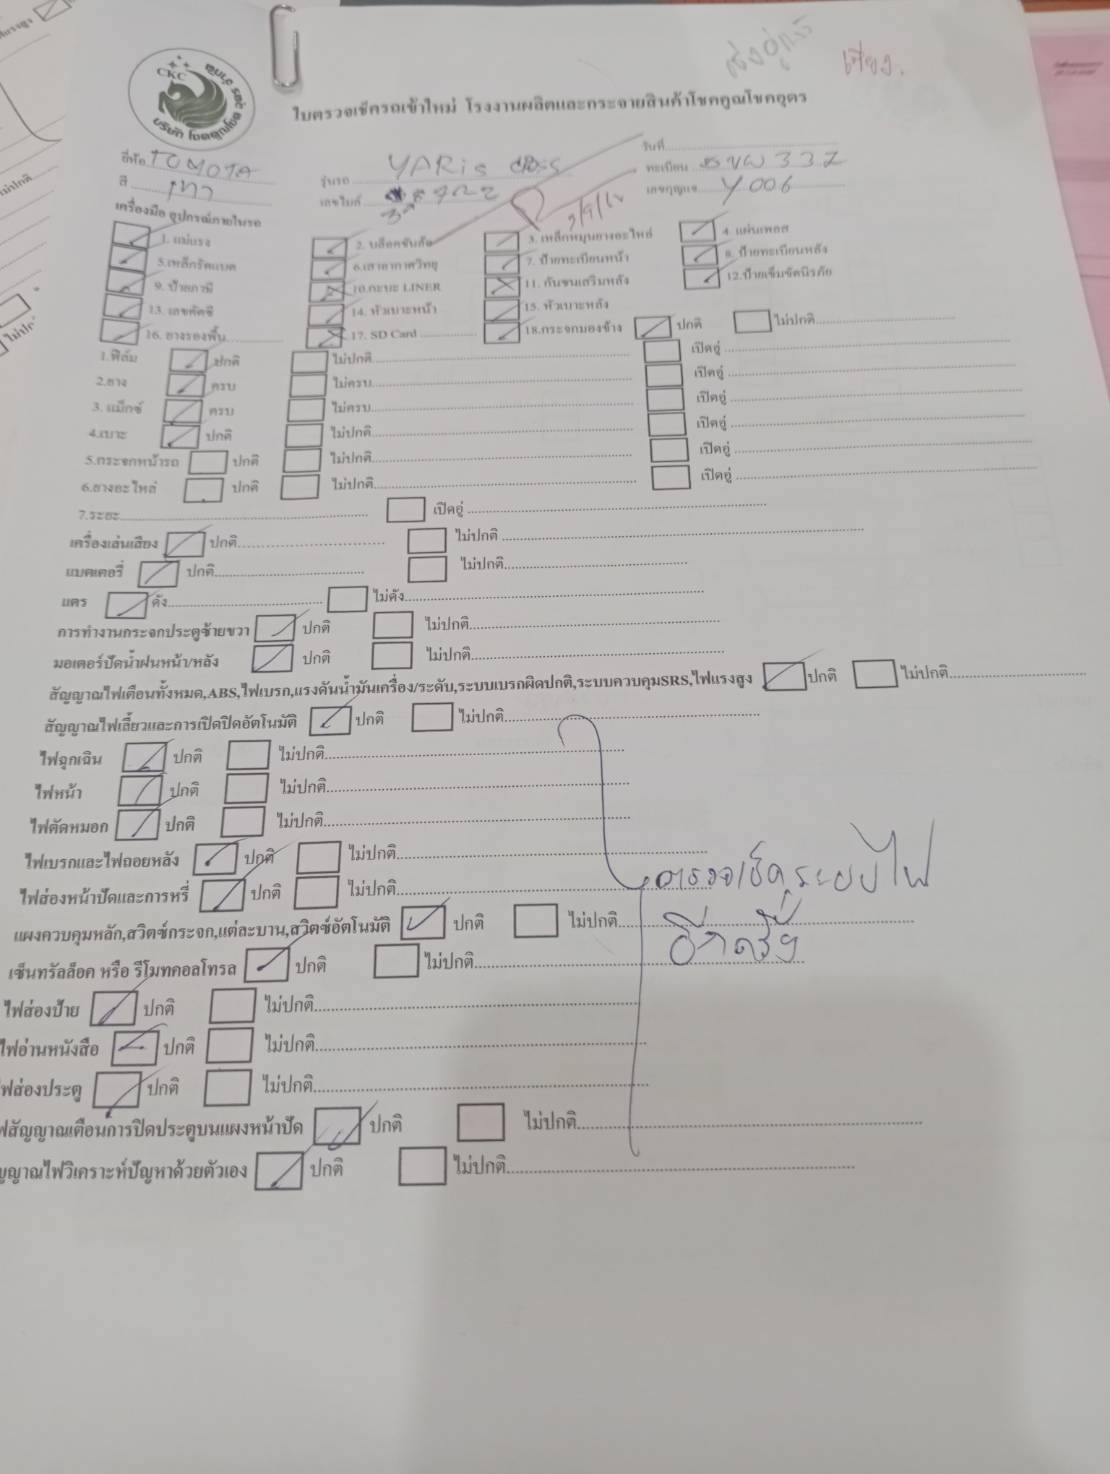 CKC
ใบตรวจเช็ครถเข้าใหม่ โรงงานผลิตและกระจายสินค้าโชคคูณโชคอุดร
วันที่
ยี่ห้อ TOYOTA รุ่นรถ YARiS cross ทะเบียน 332
สี เทา เลขไมล์ เลขกุญแจ Y 006
เครื่องมือ อุปกรณ์ภายในรถ
1. แม่แรง 2. บล็อคขันล้อ 3. เหล็กหมุนยางอะไหล่ 4. แผ่นเพลท
5.เหล็กรัดแบต 6.เสาอากาศวิทยุ 7. ป้ายทะเบียนหน้า 8. ป้ายทะเบียนหลัง
9. ป้ายภาษี 10.กะบะ LINER 11. กันชนเสริมหลัง 12.ป้ายเข็มขัดนิรภัย
13. เข็มขัด 14. หัวเบาะหน้า 15. หัวเบาะหลัง
16. ยางรองพื้น 17. SD Card 18.กระจกมองข้าง ปกติ ไม่ปกติ
1.ฟิล์ม ปกติ ไม่ปกติ เปิดอู่
2.ยาง ครบ ไม่ครบ เปิดอู่
3. แม็กซ์ ครบ ไม่ครบ เปิดอู่
4.เบาะ ปกติ ไม่ปกติ เปิดอู่
5.กระจกหน้ารถ ปกติ ไม่ปกติ เปิดอู่
6.ยางอะไหล่ ปกติ ไม่ปกติ เปิดอู่
7.ระยะ เปิดอู่
เครื่องเล่นเสียง ปกติ ไม่ปกติ
แบตเตอรี่ ปกติ ไม่ปกติ
แตร ดัง ไม่ดัง
การทำงานกระจกประตูซ้ายขวา ปกติ ไม่ปกติ
มอเตอร์ปัดน้ำฝนหน้า/หลัง ปกติ ไม่ปกติ
สัญญาณไฟเตือนทั้งหมด,ABS,ไฟเบรก,แรงดันน้ำมันเครื่อง/ระดับ,ระบบเบรกผิดปกติ,ระบบควบคุมSRS,ไฟแรงสูง ปกติ ไม่ปกติ
สัญญาณไฟเลี้ยวและการเปิดปิดอัตโนมัติ ปกติ ไม่ปกติ
ไฟฉุกเฉิน ปกติ ไม่ปกติ
ไฟหน้า ปกติ ไม่ปกติ
ไฟตัดหมอก ปกติ ไม่ปกติ
ไฟเบรกและไฟถอยหลัง ปกติ ไม่ปกติ
ไฟส่องหน้าปัดและการหรี่ ปกติ ไม่ปกติ
ตรวจเช็คระบบไฟ
อีกครั้ง
แผงควบคุมหลัก,สวิตซ์กระจก,แต่ละบาน,สวิตซ์อัตโนมัติ ปกติ ไม่ปกติ
เซ็นทรัลล็อค หรือ รีโมทคอลโทรล ปกติ ไม่ปกติ
ไฟส่องป้าย ปกติ ไม่ปกติ
ไฟอ่านหนังสือ ปกติ ไม่ปกติ
ฟส่องประตู ปกติ ไม่ปกติ
ฟสัญญาณเตือนการปิดประตูบนแผงหน้าปัด ปกติ ไม่ปกติ
ญญาณไฟวิเคราะห์ปัญหาด้วยตัวเอง ปกติ ไม่ปกติ